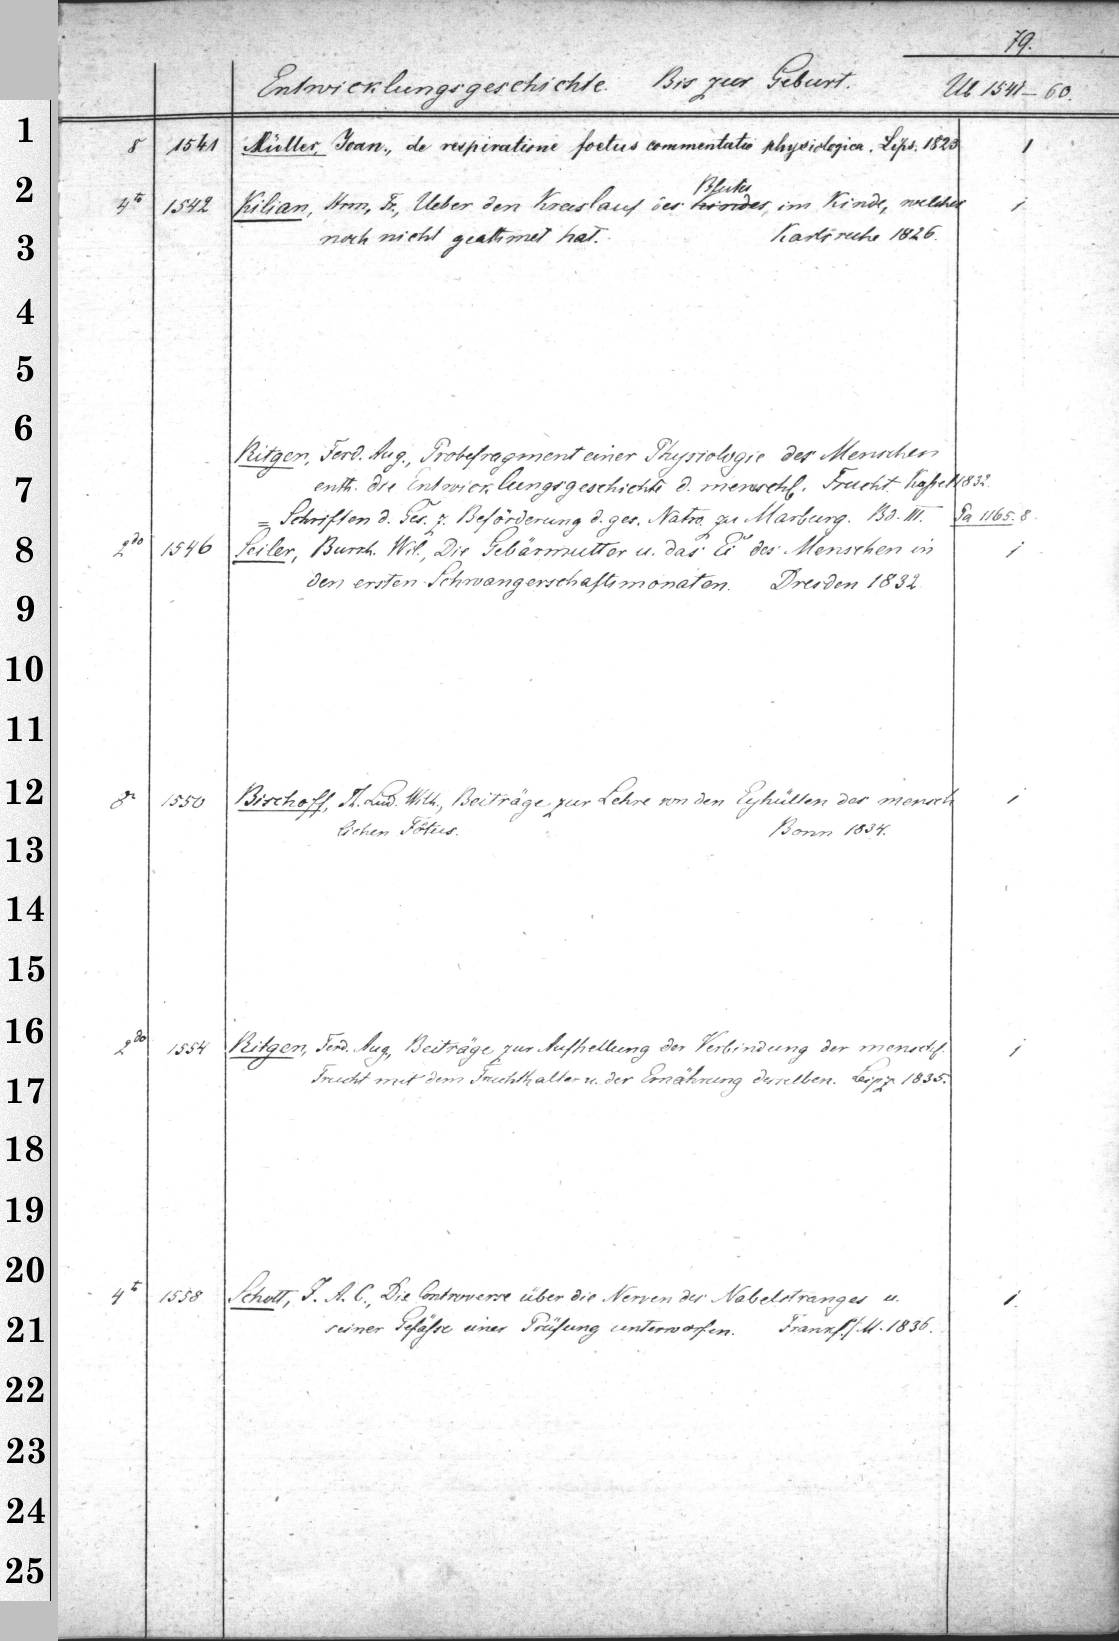 79.
Entwicklungsgeschichte. Bis zur Geburt. Ub 1541–60.
1
8 1541 Müller, Joan., de respiratione foetus commentatio physiologica. Lips. 1823 1
2
Blutes
4to 1542 Kilian, Herm. Fr., Ueber den Kreislauf des Kindes, im Kinde, welches 1
3
noch nicht geathmet hat. Karlsruhe 1826.
4
5
6
Ritgen, Ferd. Aug., Probefragment einer Physiologie des Menschen
7
enth. die Entwicklungsgeschichte d. menschl. Frucht. Kassel 1832.
= Schriften d. Ges. z. Beförderung d. ges. Natw. zu Marburg. Bd. III. Pa 1165. 8.
8
2do 1546 Seiler, Burch. Wil., Die Gebärmutter u. das Ei des Menschen in 1
9
den ersten Schwangerschaftsmonaten. Dresden 1832.
10
11
12
8o 1550 Bischoff, Th. Lud. Wilh., Beiträge zur Lehre von den Eyhüllen des mensch 1
13
lichen Fötus. Bonn 1834.
14
15
16
2do 1554 Ritgen, Ferd. Aug., Beiträge zur Aufhellung der Verbindung der menschl. 1
17
Frucht mit dem Fruchthalter u. der Ernährung derselben. Leipz. 1835.
18
19
20
4to 1558 Schott, J. A. C., Die Controverse über die Nerven des Nabelstranges u. 1.
21
seiner Gefässe einer Prüfung unterworfen. Frankf. /M. 1836.
22
23
24
25